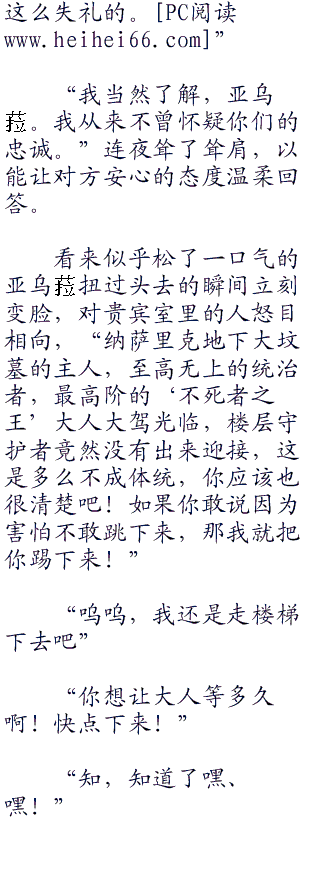 这么失礼的。[PC阅读
www.heihei66.com]”
“我当然了解，亚乌
菈。我从来不曾怀疑你们的
忠诚。”连夜耸了耸肩，以
能让对方安心的态度温柔回
答。
看来似乎松了一口气的
亚乌菈扭过头去的瞬间立刻
变脸，对贵宾室里的人怒目
相向，“纳萨里克地下大坟
墓的主人，至高无上的统治
者，最高阶的‘不死者之
王’大人大驾光临，楼层守
护者竟然没有出来迎接，这
是多么不成体统，你应该也
很清楚吧！如果你敢说因为
害怕不敢跳下来，那我就把
你踢下来！”
“呜呜，我还是走楼梯
下去吧”
“你想让大人等多久
啊！快点下来！”
“知，知道了嘿、
嘿！”